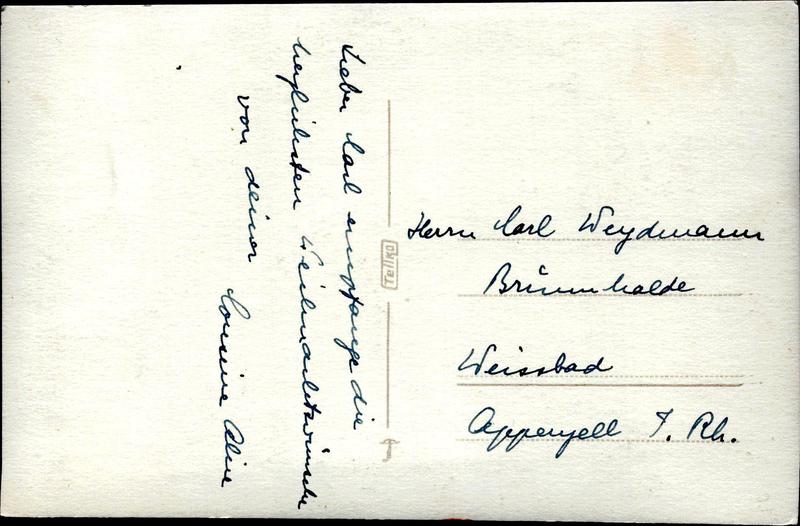 Lieber Carl empfange die
herzlichsten Weihnachtswünsche
von deiner Cousine Aline
Herrn Carl Weydmann
Brünnhalde
Weissbad
Appenzell I. Rh.